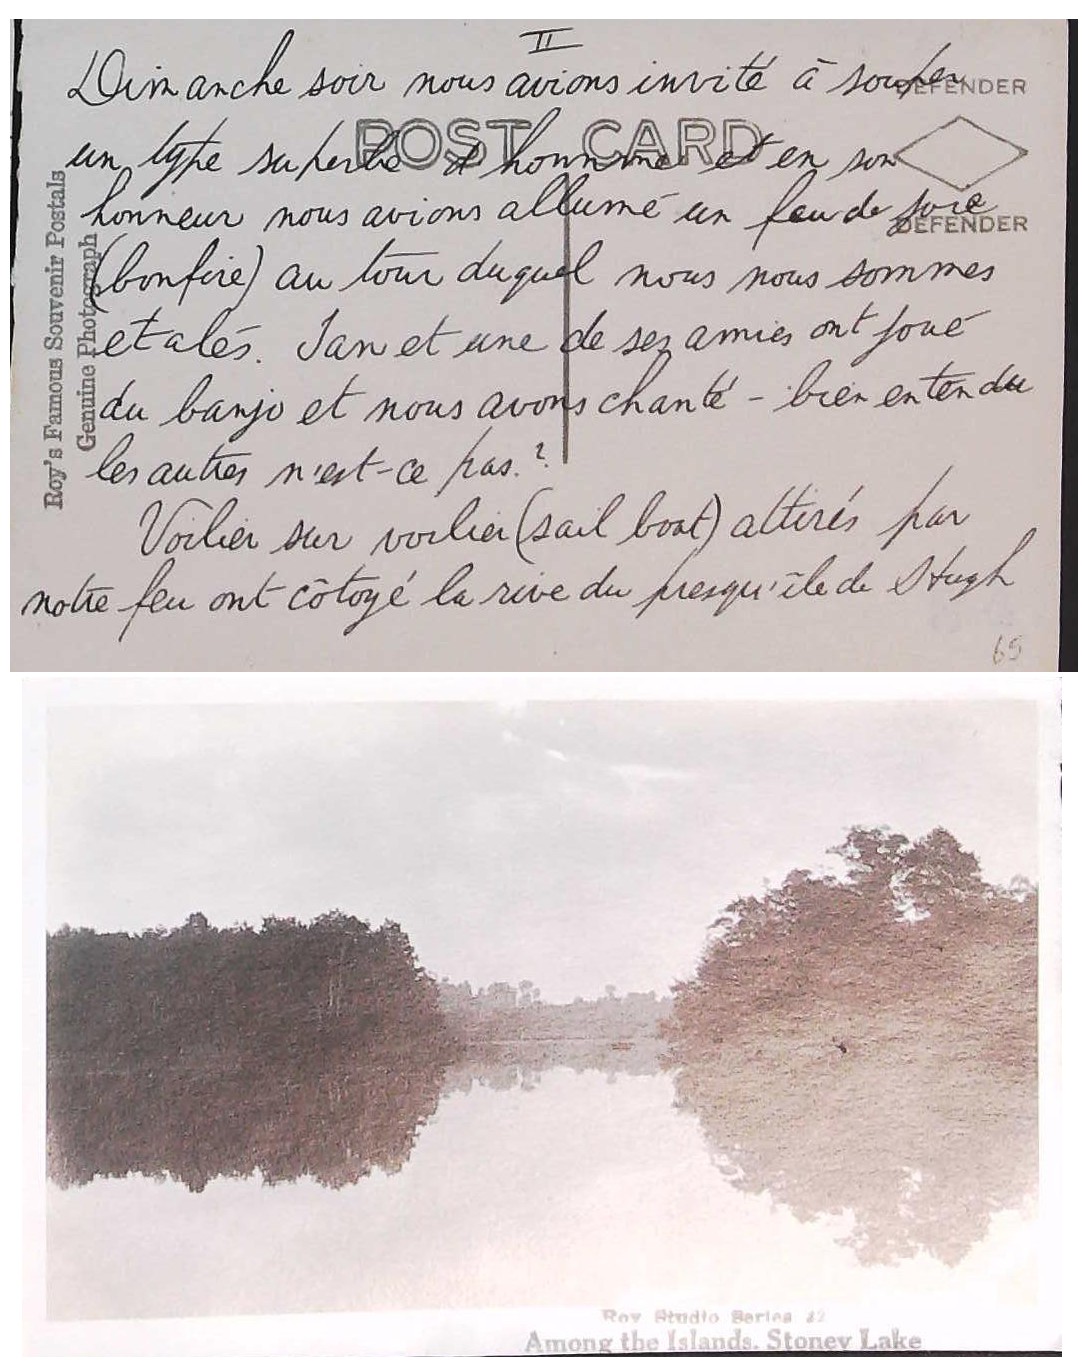 II
Dimanche soir nous avions invité à souper
un type superbe d'homme et en son
honneur nous avions allumé un feu de joie
(bonfire) au tour duquel nous nous sommes
etalés. Jan et une de ses amies ont joué
du banjo et nous avons chanté - bien entendu
les autres n'est-ce pas.?
Voilier sur voilier (sail boat) attirés par
notre feu ont côtoyé la rive du presqu'île de Hugh
65
POST CARD
DEFENDER
DEFENDER
Roy's Famous Souvenir Postals
Genuine Photograph
Roy Studio Series 22
Among the Islands. Stoney Lake